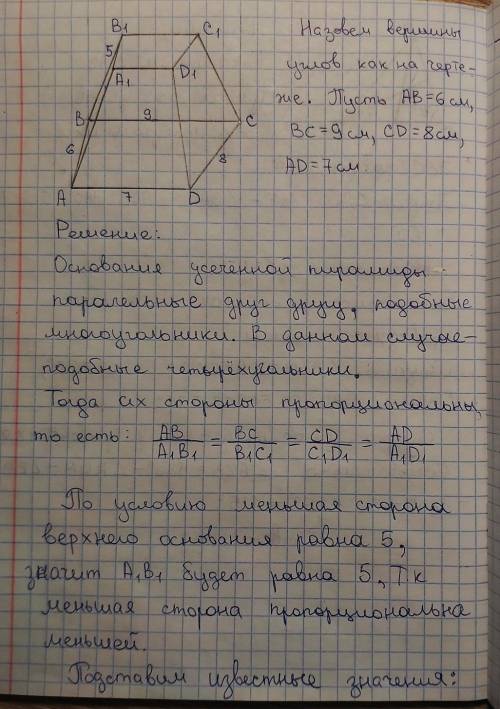 B₁ C₁ Назовем вершины
5 A₁ D₁ углов как на черте-
же. Пусть AB=6 см,
B 9 C BC=9 см, CD=8 см,
6 8 AD=7 см.
A 7 D
Решение:
Основания усечённой пирамиды
паралельные друг другу, подобные
многоугольники. В данном случае-
подобные четырёхугольники.
Тогда их стороны пропорциональны,
то есть: AB/A₁B₁ = BC/B₁C₁ = CD/C₁D₁ = AD/A₁D₁
По условию меньшая сторона
верхнего основания равна 5,
значит A₁B₁ будет равна 5, т.к
меньшая сторона пропорциональна
меньшей.
Подставим известные значения: